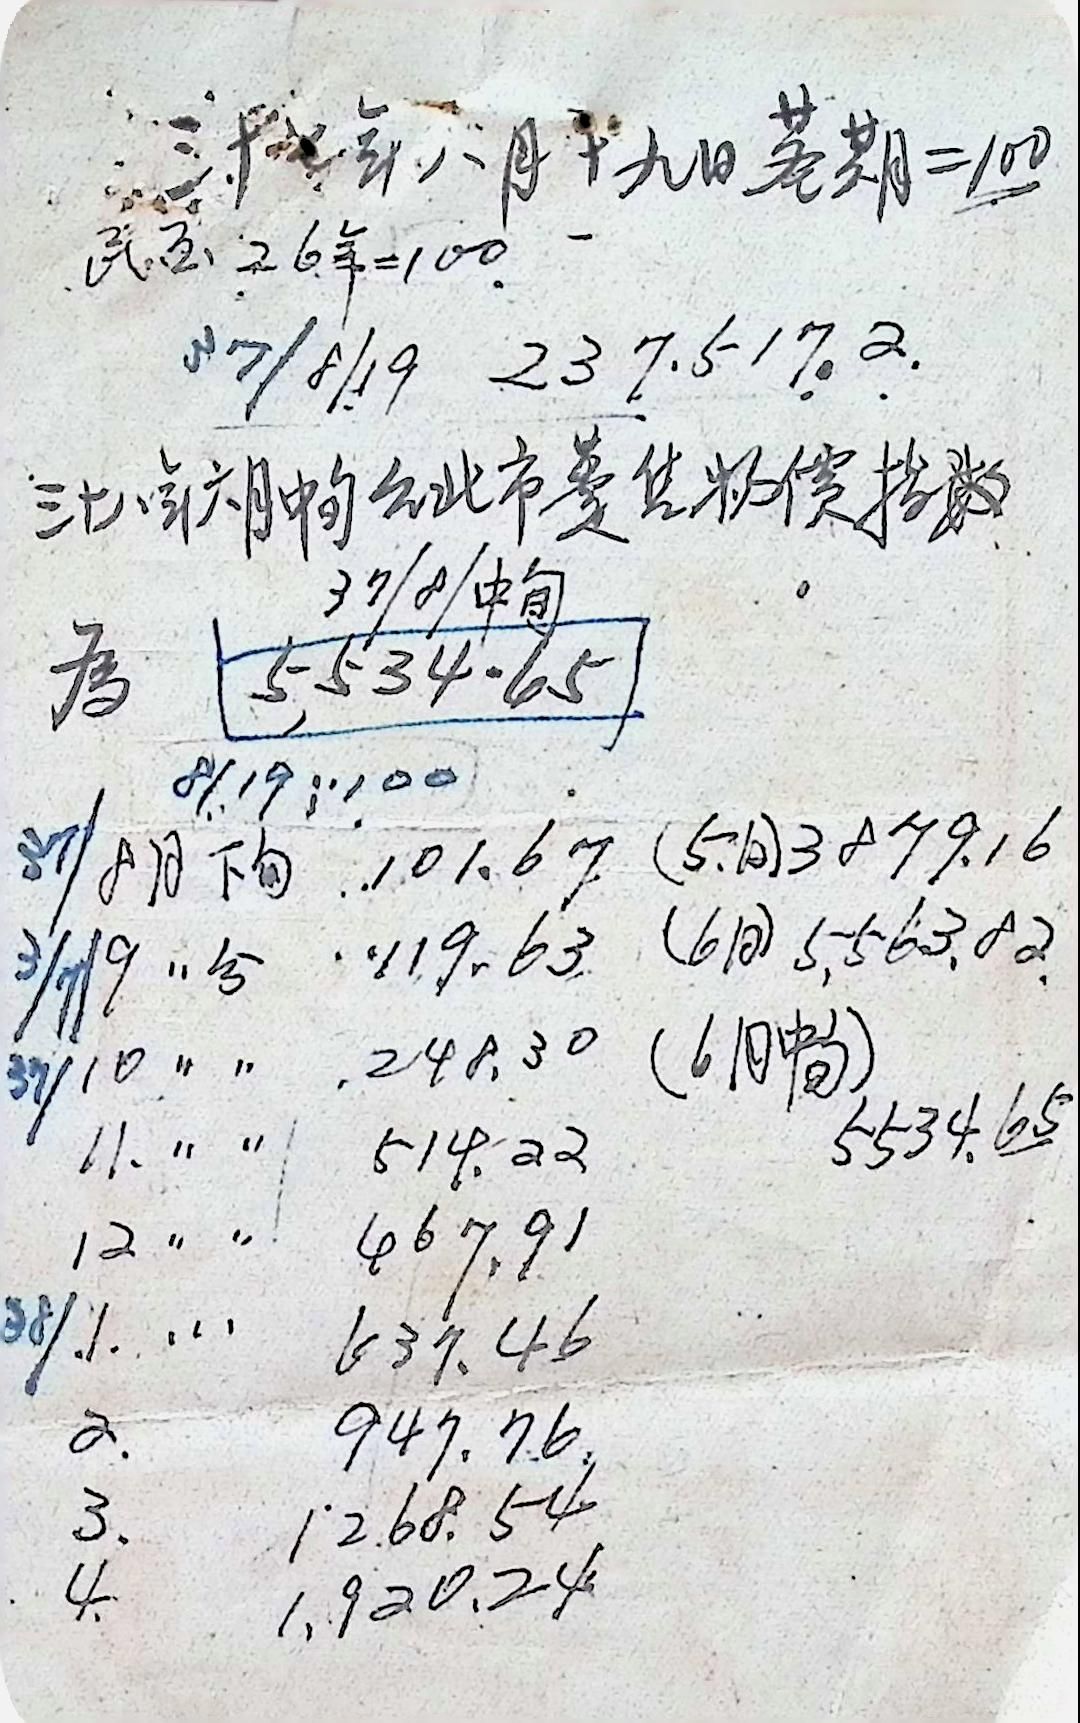 三十七年八月十九日基期=100
民国26年=100
37/8/19 237.517.2.
三十八年六月中旬台北市躉售物價指數
37/8/中旬
為 5,534.65
8/19:100
37/8月下旬 101.67 (5月)3879.16
37/9〃〃 119.63 (6月)5,563.82
37/10〃〃 248.30 (6月中旬)
5534.65
11.〃〃 514.22
12〃〃 467.91
38/1. 637.46
2. 947.76.
3. 1268.54
4. 1,920.24